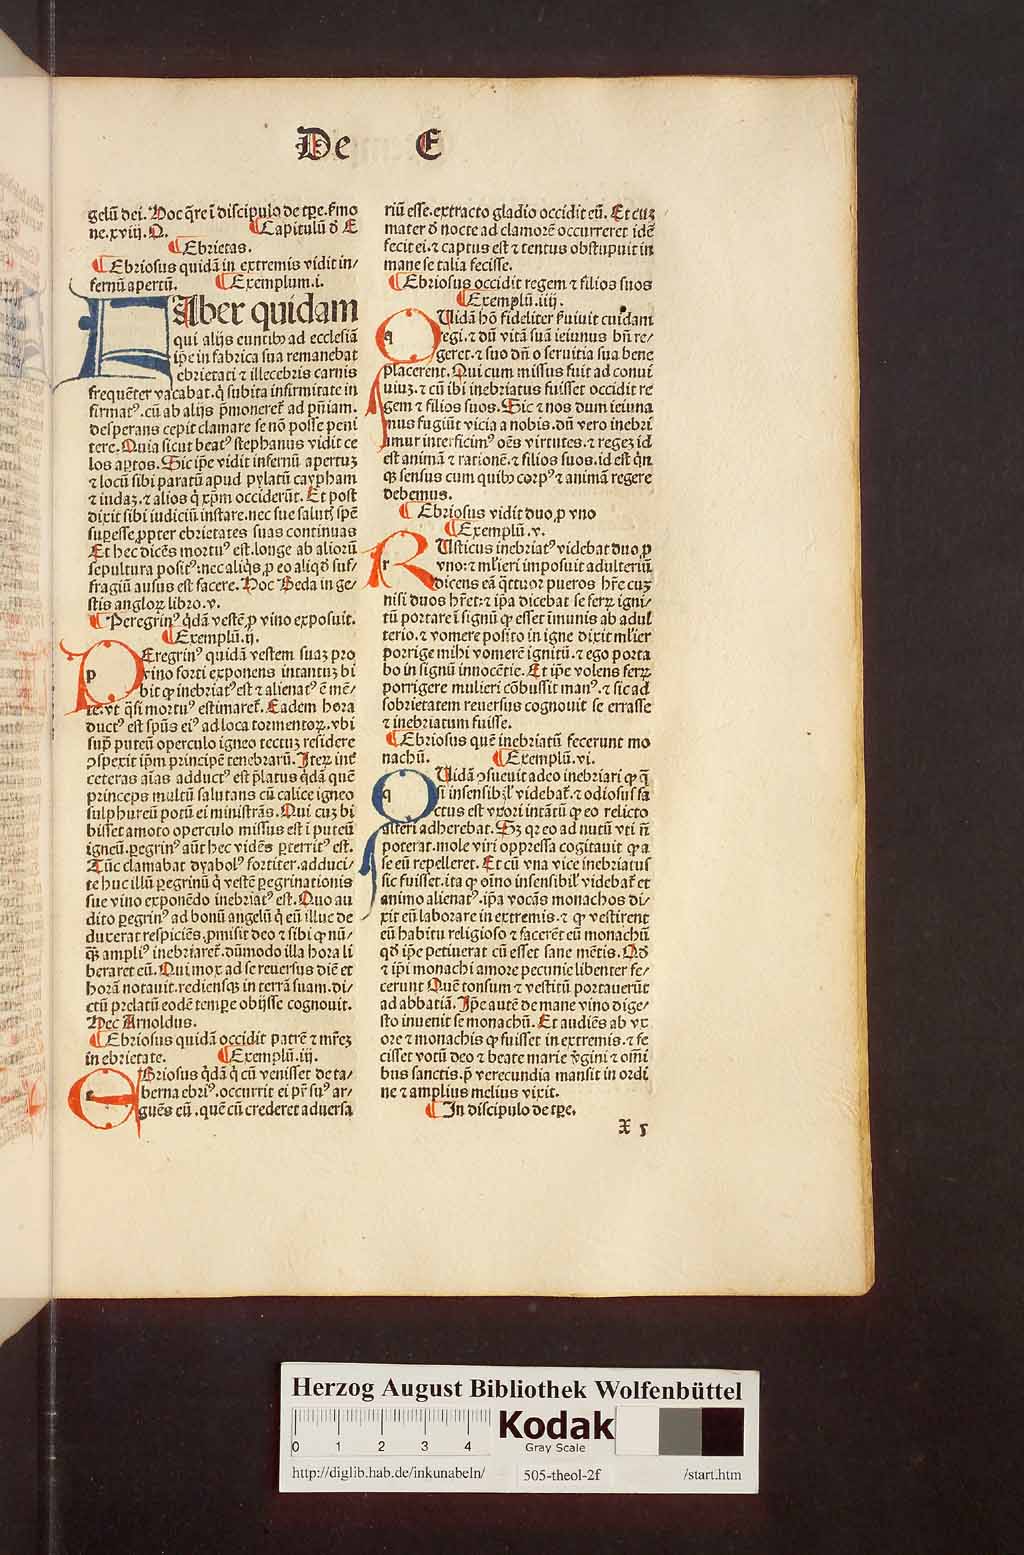 De E
gelū dei. Hoc q̄re ī discipulo de tp̄e. ẜmo
ne. xviij. Q. ¶Capitulū ð E
¶Ebrietas.
¶Ebriosus quidā in extremis vidit in/
fernū apertū. ¶Exemplum. i.
Aber quidam
qui alijs euntibꝰ ad ecclesiā
ip̄e in fabrica sua remanebat
ebrietati ⁊ illecebris carnis
frequēter vacabat. q̇ subita infirmitate in
firmatꝰ. cū ab alijs p̄moneret̃ ad pn̄iam.
desperans cepit clamare se nō posse peni
tere. Quia sicut beatꝰ stephanus vidit ce
los aptos. Sic ip̄e vidit infernū apertuꝫ
⁊ locū sibi paratū apud pylatū caypham
⁊ iudaꝫ. ⁊ alios q̇ xp̄m occiderūt. Et post
dixit sibi iudiciū instare. nec sue salut̃ spē
suꝑesse, ꝓpter ebrietates suas continuas
Et hec dicēs mortuꝰ est. longe ab aliorū
sepultura positꝰ: nec aliq̇s ꝓ eo aliqð suf/
fragiū ausus est facere. Hoc Beda in ge/
stis angloꝝ libro. v.
¶Peregrinꝰ q̇dā vestē ꝓ vino exposuit.
¶Exemplū. ij.
p
Eregrinꝰ quidā vestem suaꝫ pro
vino forti exponens intantuꝫ bi
bit ꝙ inebriatꝰ est ⁊ alienatꝰ ē mē/
te. vt q̄si mortuꝰ estimaret̃. Eadem hora
ductꝰ est spūs eiꝰ ad loca tormentoꝝ. vbi
sup̄ puteū operculo igneo tectuꝫ residere
ꝯspexit ip̄m principē tenebrarū. Iteꝝ int̃
ceteras aīas adductꝰ est p̄latus q̇dā quē
princeps multū salutans cū calice igneo
sulphureū potū ei ministrās. Qui cuꝫ bi
bisset amoto operculo missus est ī puteū
igneū. ꝑegrinꝰ aūt hec vidēs ꝑterritꝰ est.
Tūc clamabat dyabolꝰ fortiter. adduci/
te huc illū ꝑegrinū q̇ vestē ꝑegrinationis
sue vino exponēdo inebriatꝰ est. Quo au
dito ꝑegrinꝰ ad bonū angelū q̇ eū illuc de
duxerat respiciēs, ꝓmisit deo ⁊ sibi ꝙ nū/
q̄ꝫ ampliꝰ inebriaret̃. dūmodo illa hora li
beraret eū. Qui mox ad se reuersus diē et
horā notauit. rediensqꝫ in terrā suam. di/
ctū prelatū eodē tempꝑe obijsse cognouit.
Hec Arnoldus.
¶Ebriosus quidā occidit patrē ⁊ mr̄eꝫ
in ebrietate. ¶Exemplū. iij.
e
Briosus q̇dā q̇ cū venisset de ta/
berna ebriꝰ. occurrit ei pr̄ suꝰ ar/
guēs eū. quē cū crederet aduersa
riū esse. extracto gladio occidit eū. Et cuꝫ
mater ð nocte ad clamorē occurreret idē
fecit ei. ⁊ captus est ⁊ tentus obstupuit in
mane se talia fecisse.
¶Ebriosus occidit regem ⁊ filios suos
¶Exemplū. iiij.
q
Uidā hō fideliter ẜuiuit cuidam
regi. ⁊ dū vitā suā ieiunus bn̄ re/
geret. ⁊ suo dn̄o seruitia sua bene
placerent. Qui cum missus fuit ad conui
uiuꝫ. ⁊ cū ibi inebriatus fuisset occidit re
gem ⁊ filios suos. Sic ⁊ nos dum ieiuna
mus fugiūt vicia a nobis. dū vero inebri
amur interficimꝰ oēs virtutes. ⁊ regeꝫ id
est animā ⁊ rationē. ⁊ filios suos. id est q̇n
qꝫ sensus cum quibꝰ corpꝰ ⁊ animā regere
debemus.
¶Ebriosus vidit duo, ꝓ vno
¶Exemplū. v.
r
Usticus inebriatꝰ videbat duo, ꝓ
vno: ⁊ mul̄ieri imposuit adulteriū
dicens eā q̄ttuor pueros hr̄e cuꝫ
nisi duos hr̄et: ⁊ ip̄a dicebat se ferꝝ igni/
tū portare ī signū ꝙ esset īmunis ab adul
terio. ⁊ vomere posito in igne dixit mul̄ier
porrige mihi vomerē ignitū. ⁊ ego porta
bo in signū innocētie. Et ip̄e volens ferꝝ
porrigere mulieri cōbussit manꝰ. ⁊ sic ad
sobrietatem reuersus cognouit se errasse
⁊ inebriatum fuisse.
¶Ebriosus quē inebriatū fecerunt mo
nachū. ¶Exemplū. vi.
q
Uidā ꝯsueuit adeo inebriari ꝙ q̄
si insensibil̓ videbat̃. ⁊ odiosus fa
ctus est vxori intātū ꝙ eo relicto
alteri adherebat. Sꝫ qꝛ eo ad nutū vti n̄
poterat. mole viri oppressa cogitauit ꝙ a
se eū repelleret. Et cū vna vice inebriatus
sic fuisset. ita ꝙ oīno insensibil̓ videbat̃ et
animo alienatꝰ. ip̄a vocās monachos di/
xit eū laborare in extremis. ⁊ ꝙ vestirent
eū habitu religioso ⁊ facerēt eū monachū
qð ip̄e petiuerat cū esset sane mētis. Qð
⁊ ip̄i monachi amore pecunie libenter fe/
cerunt Quē tonsum ⁊ vestitū portauerūt
ad abbatiā. Ip̄e autē de mane vino dige/
sto inuenit se monachū. Et audiēs ab vx
ore ⁊ monachis ꝙ fuisset in extremis. ⁊ fe
cisset votū deo ⁊ beate marie v̄gini ⁊ om̄i
bus sanctis. p̄ verecundia mansit in ordi
ne ⁊ amplius melius vixit.
¶In discipulo de tp̄e.
X 5
Herzog August Bibliothek Wolfenbüttel
0 1 2 3 4
Kodak
Gray Scale
http://diglib.hab.de/inkunabeln/ 505-theol-2f /start.htm